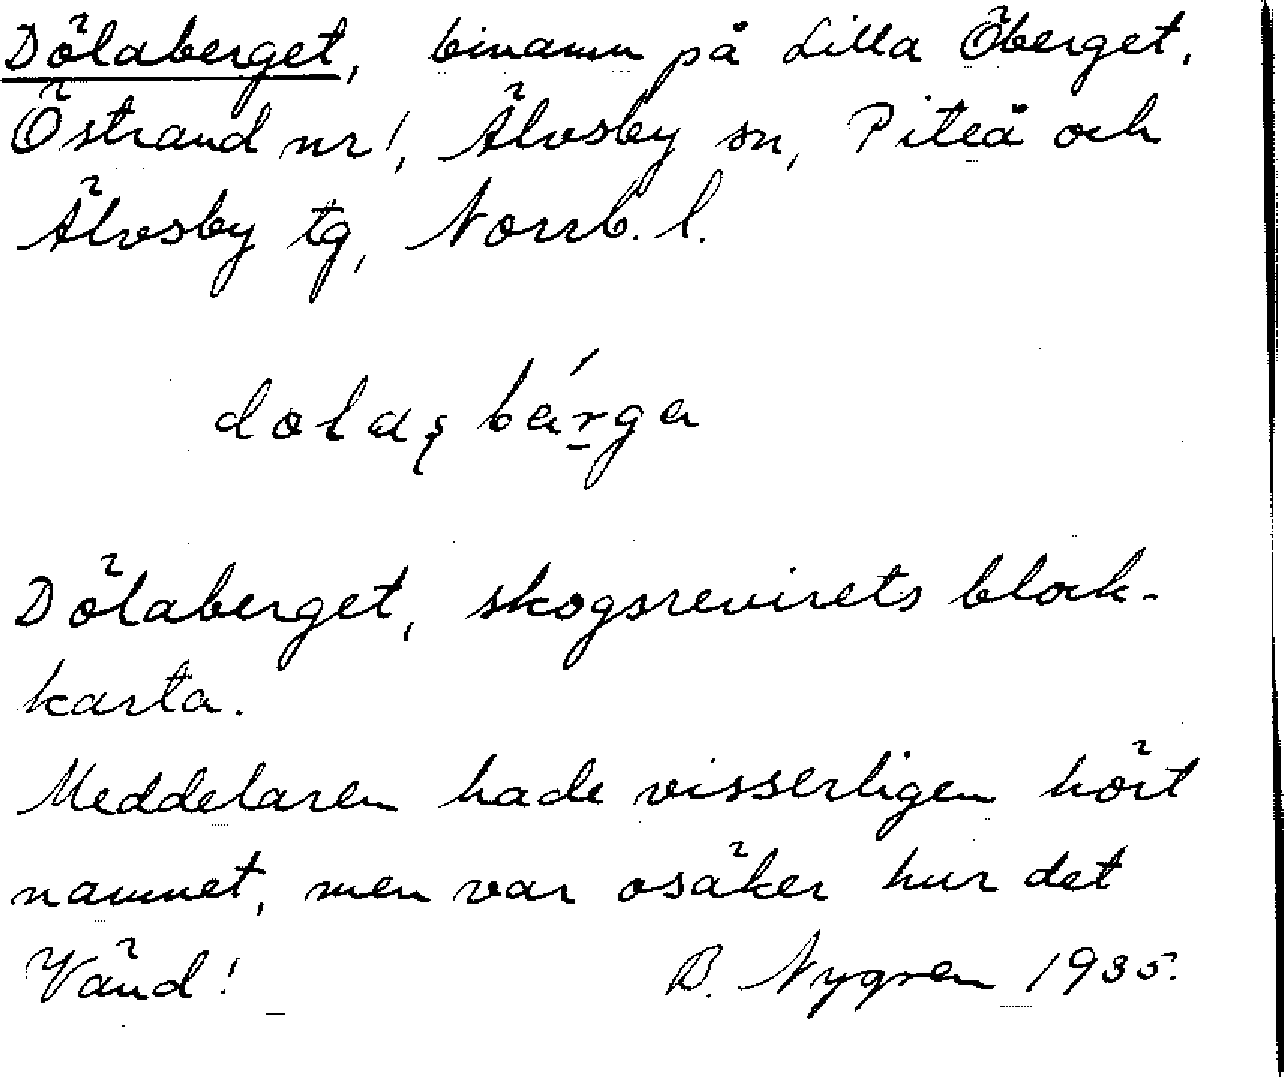 Dölaberget, binamn på Lilla Öberget,
Östrand nr 1, Älvsby sn, Piteå och
Älvsby tg, Norrb. l.
Dölaberget, skogsrevirets block-
karta.
Meddelaren hade visserligen hört
namnet, men var osäker hur det
Vänd! B. Nygren 1935.